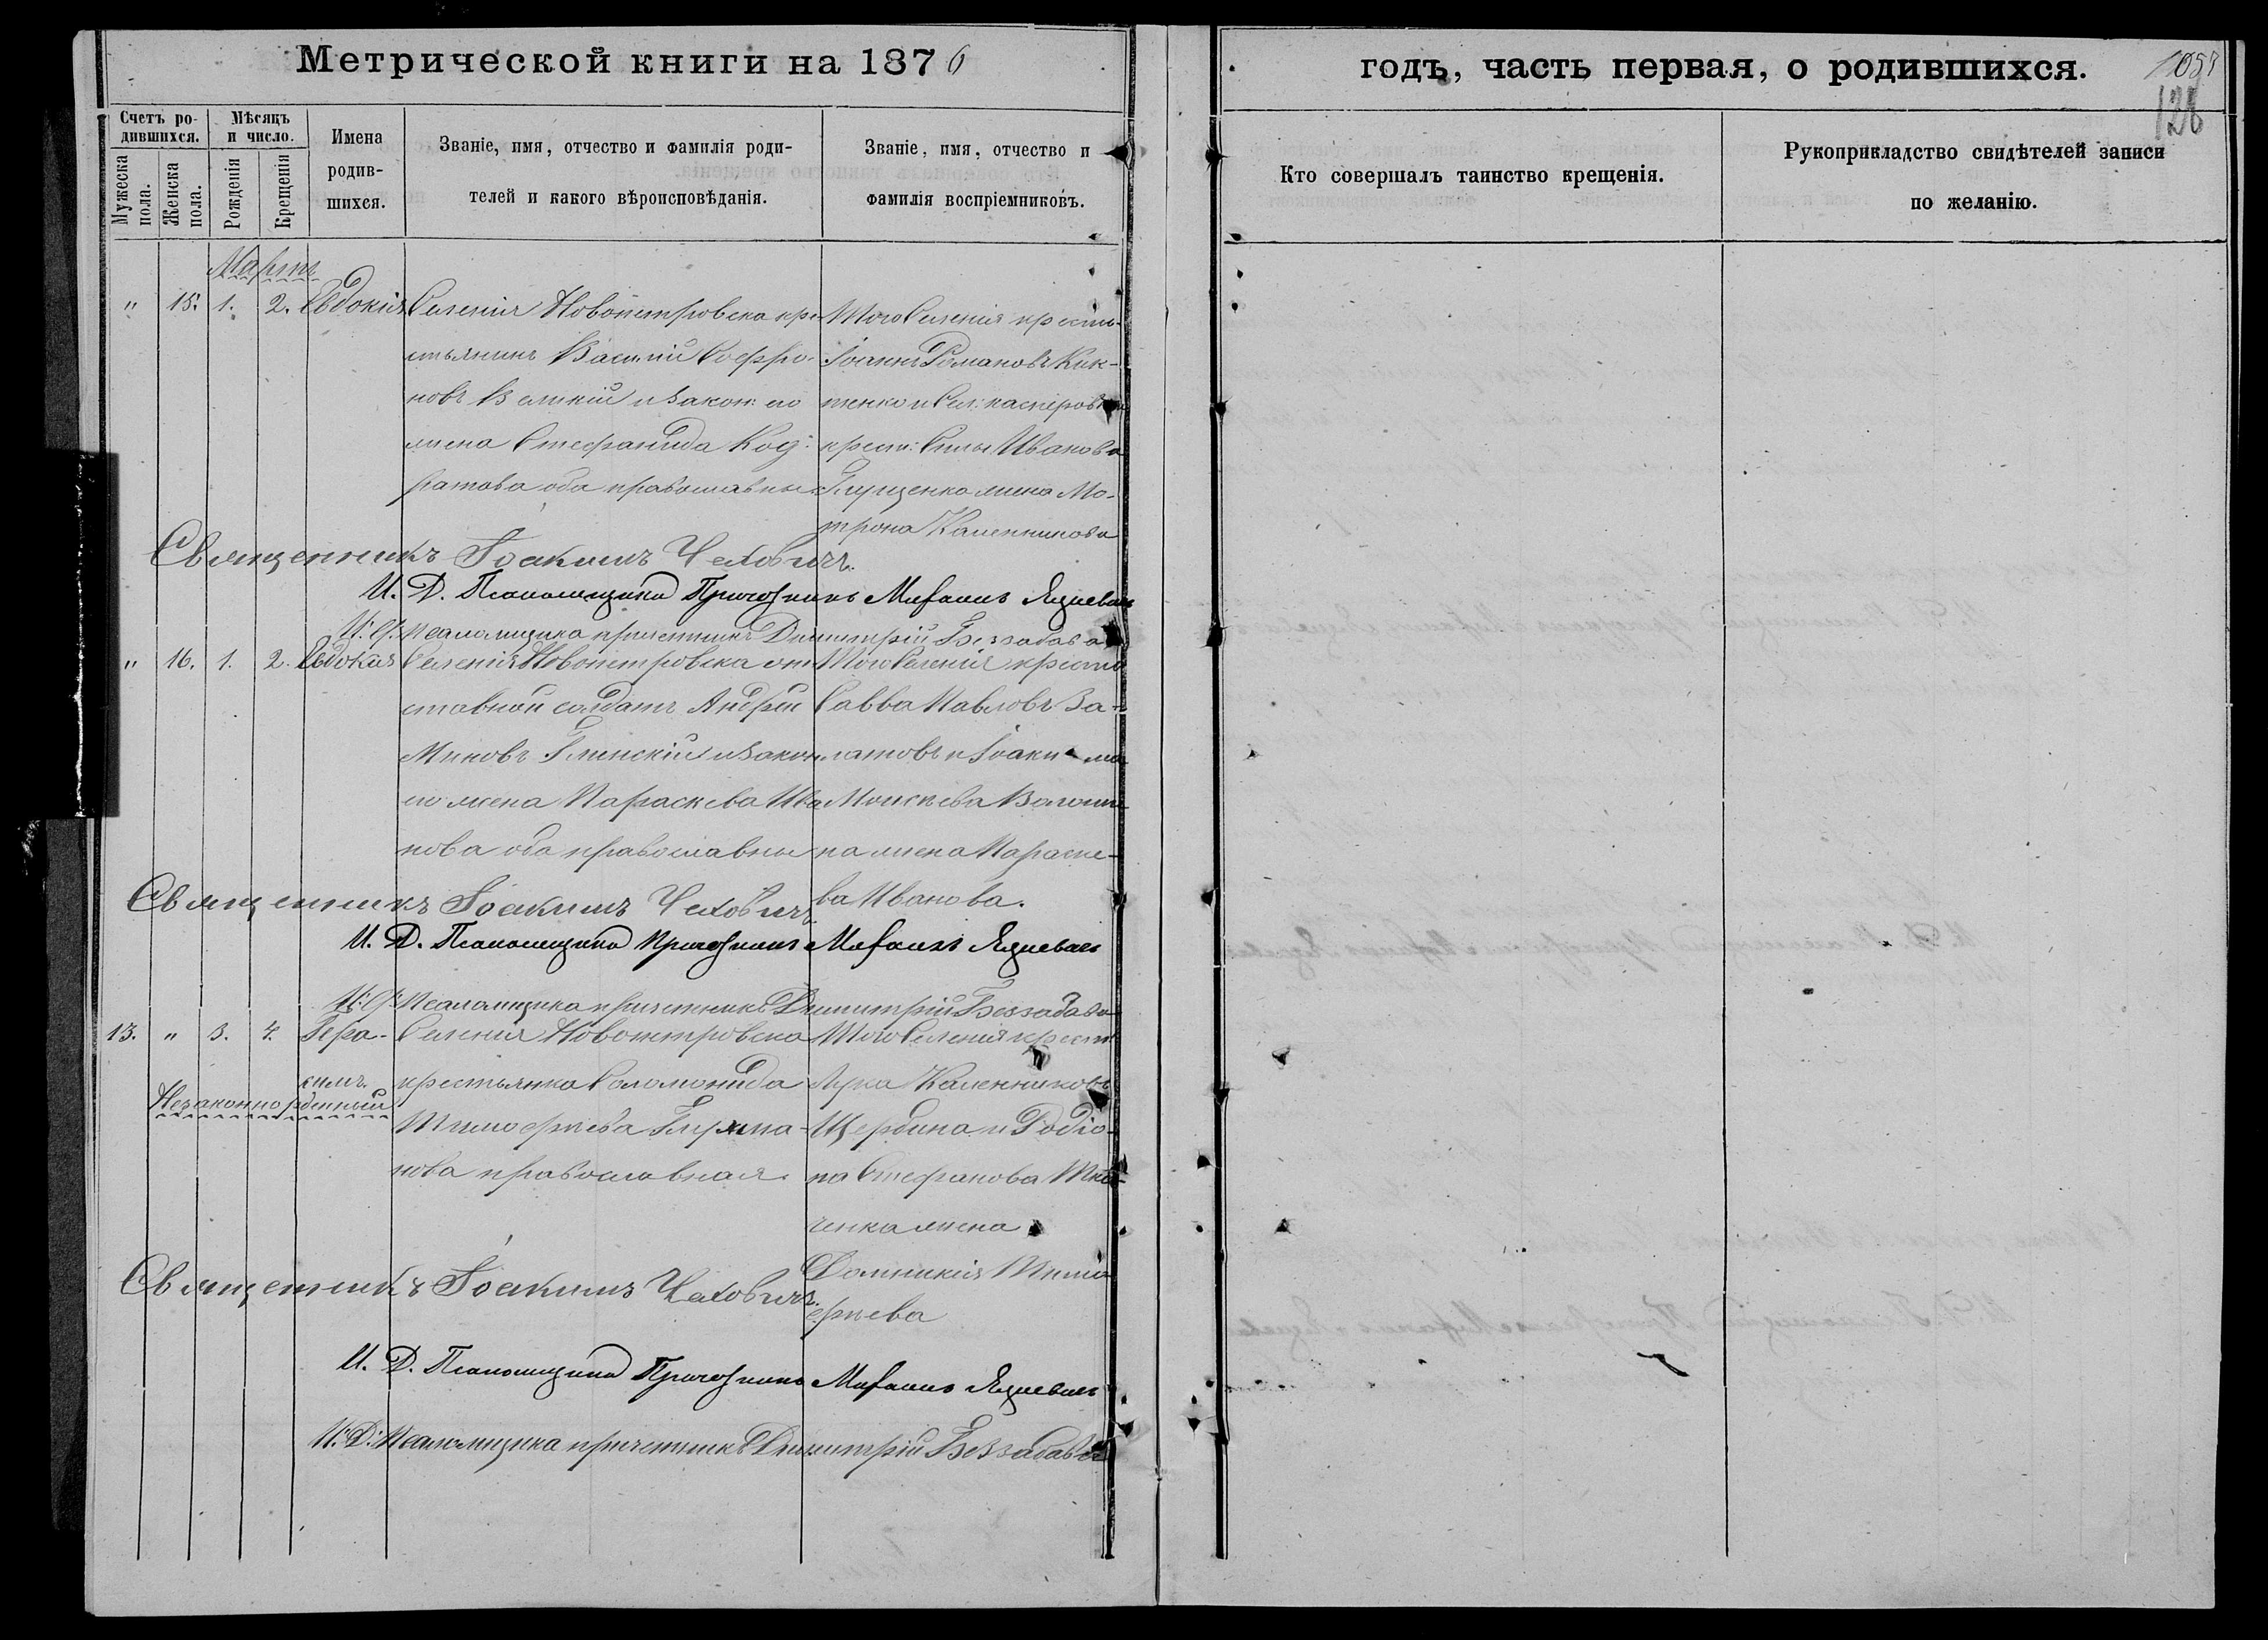 Метрической книги на 1876
годъ, часть первая, о родившихся.
1058
128
Счетъ ро-
дившихся.
Мѣсяцъ
и число.
Мужеска
пола.
Женска
пола.
Рожденія
Крещенія
Имена
родив-
шихся.
Званіе, имя, отчество и фамилія роди-
телей и какого вѣроисповѣданія.
Званіе, имя, отчество и
фамилія воспріемниковъ.
Кто совершалъ таинство крещенія.
Рукоприкладство свидѣтелей записи
по желанію.
Мартъ
" 15. 1. 2. Евдокія
Селенія Новопетровска кре-
стьянинъ Василій Софро-
новъ Великій и закон: его
жена Стефанида Код-
ратова оба православные
Того Селенія кресть-
Іоаннъ Романовъ Кик-
тенко и Сел:
крест: Силы Иванова
Глущенко жена Мо-
трона Каленникова
Священникъ Іоакимъ Чехович
И. Д. Псаломщика Причетникъ Михаилъ Яцкевичъ
И. Д. Псаломщика причетникъ Димитрій Беззабава
" 16. 1. 2. Евдокія
Селенія Новопетровска от-
ставной солдатъ Андрей
Миновъ Глинскій и закон
его жена Параскева Ива-
нова оба православные
Того Селенія крестья
Савва Павловъ За-
латовъ и Іоакима
Моисѣева Волоши-
на жена Параске-
ва Иванова.
Священникъ Іоакимъ Чехович
И. Д. Псаломщика Причетникъ Михаилъ Яцкевичъ
И. Д. Псаломщика причетникъ Димитрій Беззабава
13. " 3. 4. Гера-
симъ.
Незаконнорденный
Селенія Новопетровска
крестьянка Соломонида
Тимофѣева
нова православная.
Того Селенія крест
Лука Каленниковъ
Щербина и Родіо-
на Стефанова Тка-
ченка жена
Домникія Тимо
фѣева
Священникъ Іоакимъ Чехович
И. Д. Псаломщика Причетникъ Михаилъ Яцкевичъ
И. Д. Псаломщика причетникъ Димитрій Беззабава